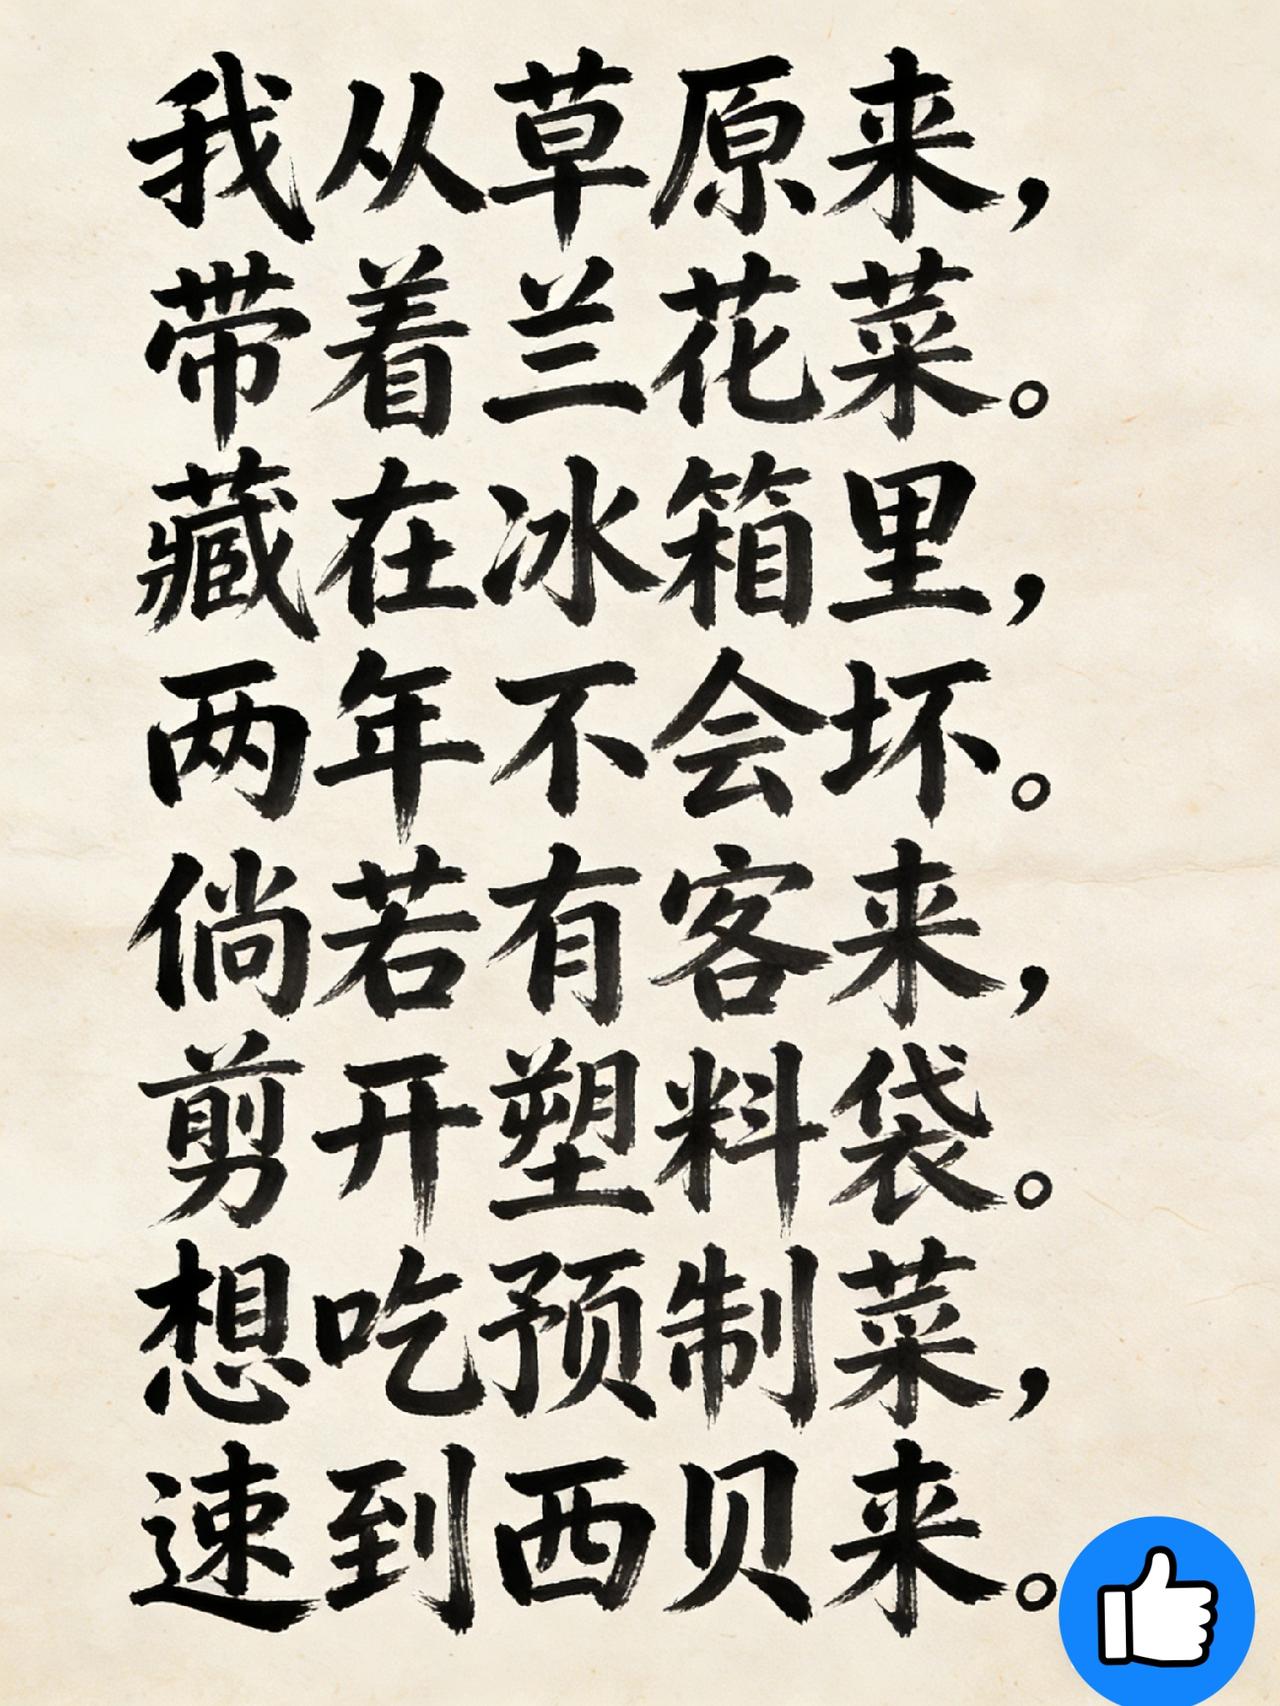 我从草原来，
带着兰花菜。
藏在冰箱里，
两年不会坏。
倘若有客来，
剪开塑料袋。
想吃预制菜，
速到西贝来。